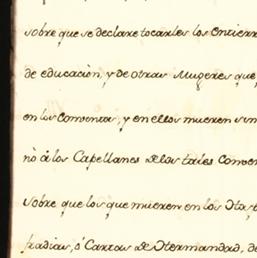 sobre que se declare tocarles los Entierr
de educacion, y de otras Mugeres que
en los Conventos, y en ellos mueren sin
nò à los Capellanes de los tales Conven
sobre que los que mueren en los
fradias, ò Cartas de Hermandad, de